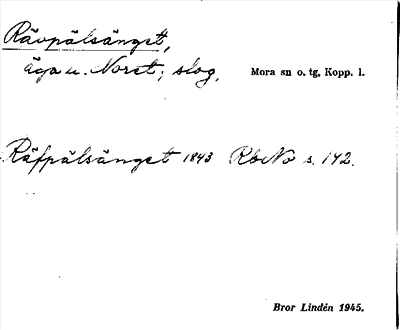 Rävpälsänget,
äga u. Noret; slog. Mora sn o. tg, Kopp. l.
Räfpälsänget 1843 RbNo s. 142.
Bror Lindén 1945.